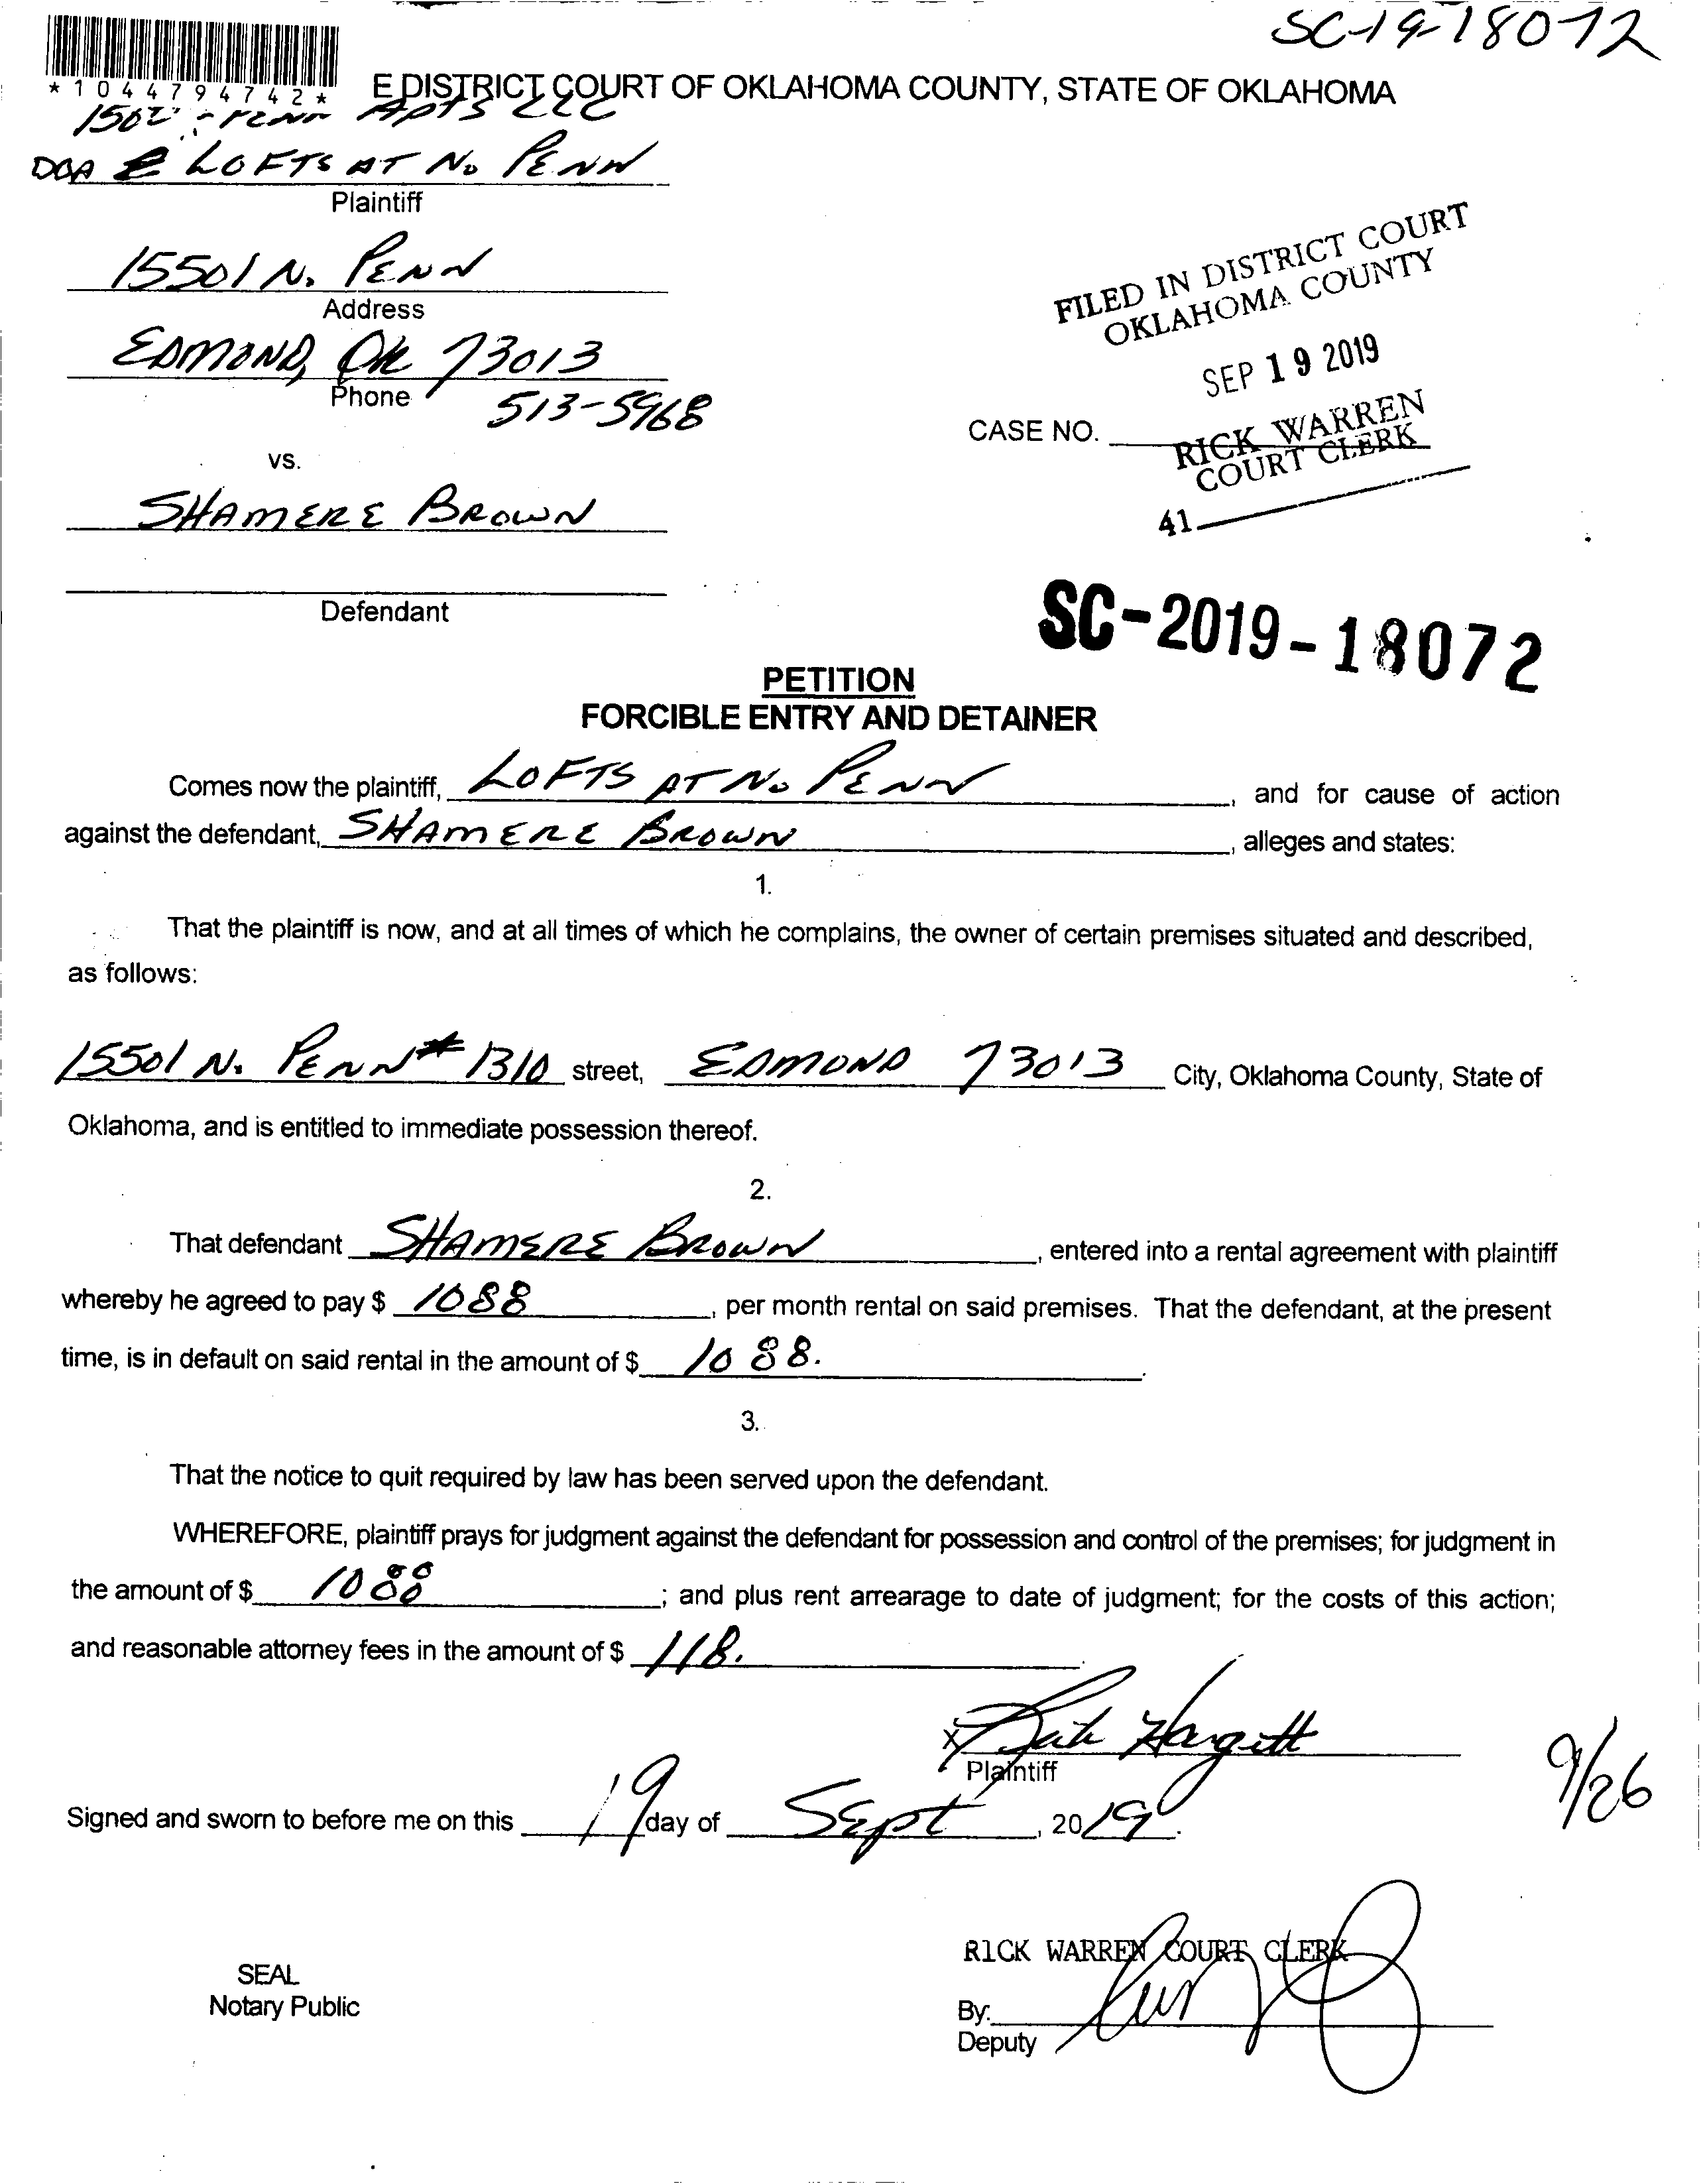 SC-19-18072
*1044794742*
E DISTRICT COURT OF OKLAHOMA COUNTY, STATE OF OKLAHOMA
Penn Apts LLC
DBA LOFTS AT No PENN
Plaintiff
15501 N. PENN
Address
EDMOND, OK 73013
Phone
513-5968
vs.
SHAMERE BROWN
Defendant
FILED IN DISTRICT COURT
OKLAHOMA COUNTY
SEP 19 2019
CASE NO.
RICK WARREN
COURT CLERK
41
SC-2019-18072
PETITION
FORCIBLE ENTRY AND DETAINER
Comes now the plaintiff, LOFTS AT No PENN, and for cause of action
against the defendant, SHAMERE BROWN, alleges and states:
1.
That the plaintiff is now, and at all times of which he complains, the owner of certain premises situated and described,
as follows:
15501 N. PENN # 1310 street, EDMOND 73013 City, Oklahoma County, State of
Oklahoma, and is entitled to immediate possession thereof.
2.
That defendant SHAMERE BROWN, entered into a rental agreement with plaintiff
whereby he agreed to pay $ 1088, per month rental on said premises. That the defendant, at the present
time, is in default on said rental in the amount of $ 1088.
3.
That the notice to quit required by law has been served upon the defendant.
WHEREFORE, plaintiff prays for judgment against the defendant for possession and control of the premises; for judgment in
the amount of $ 1088; and plus rent arrearage to date of judgment; for the costs of this action;
and reasonable attorney fees in the amount of $ 118.
X Hargett
Plaintiff
9/26
Signed and sworn to before me on this 19 day of Sept, 2019.
RICK WARREN COURT CLERK
SEAL
Notary Public
By:
Deputy